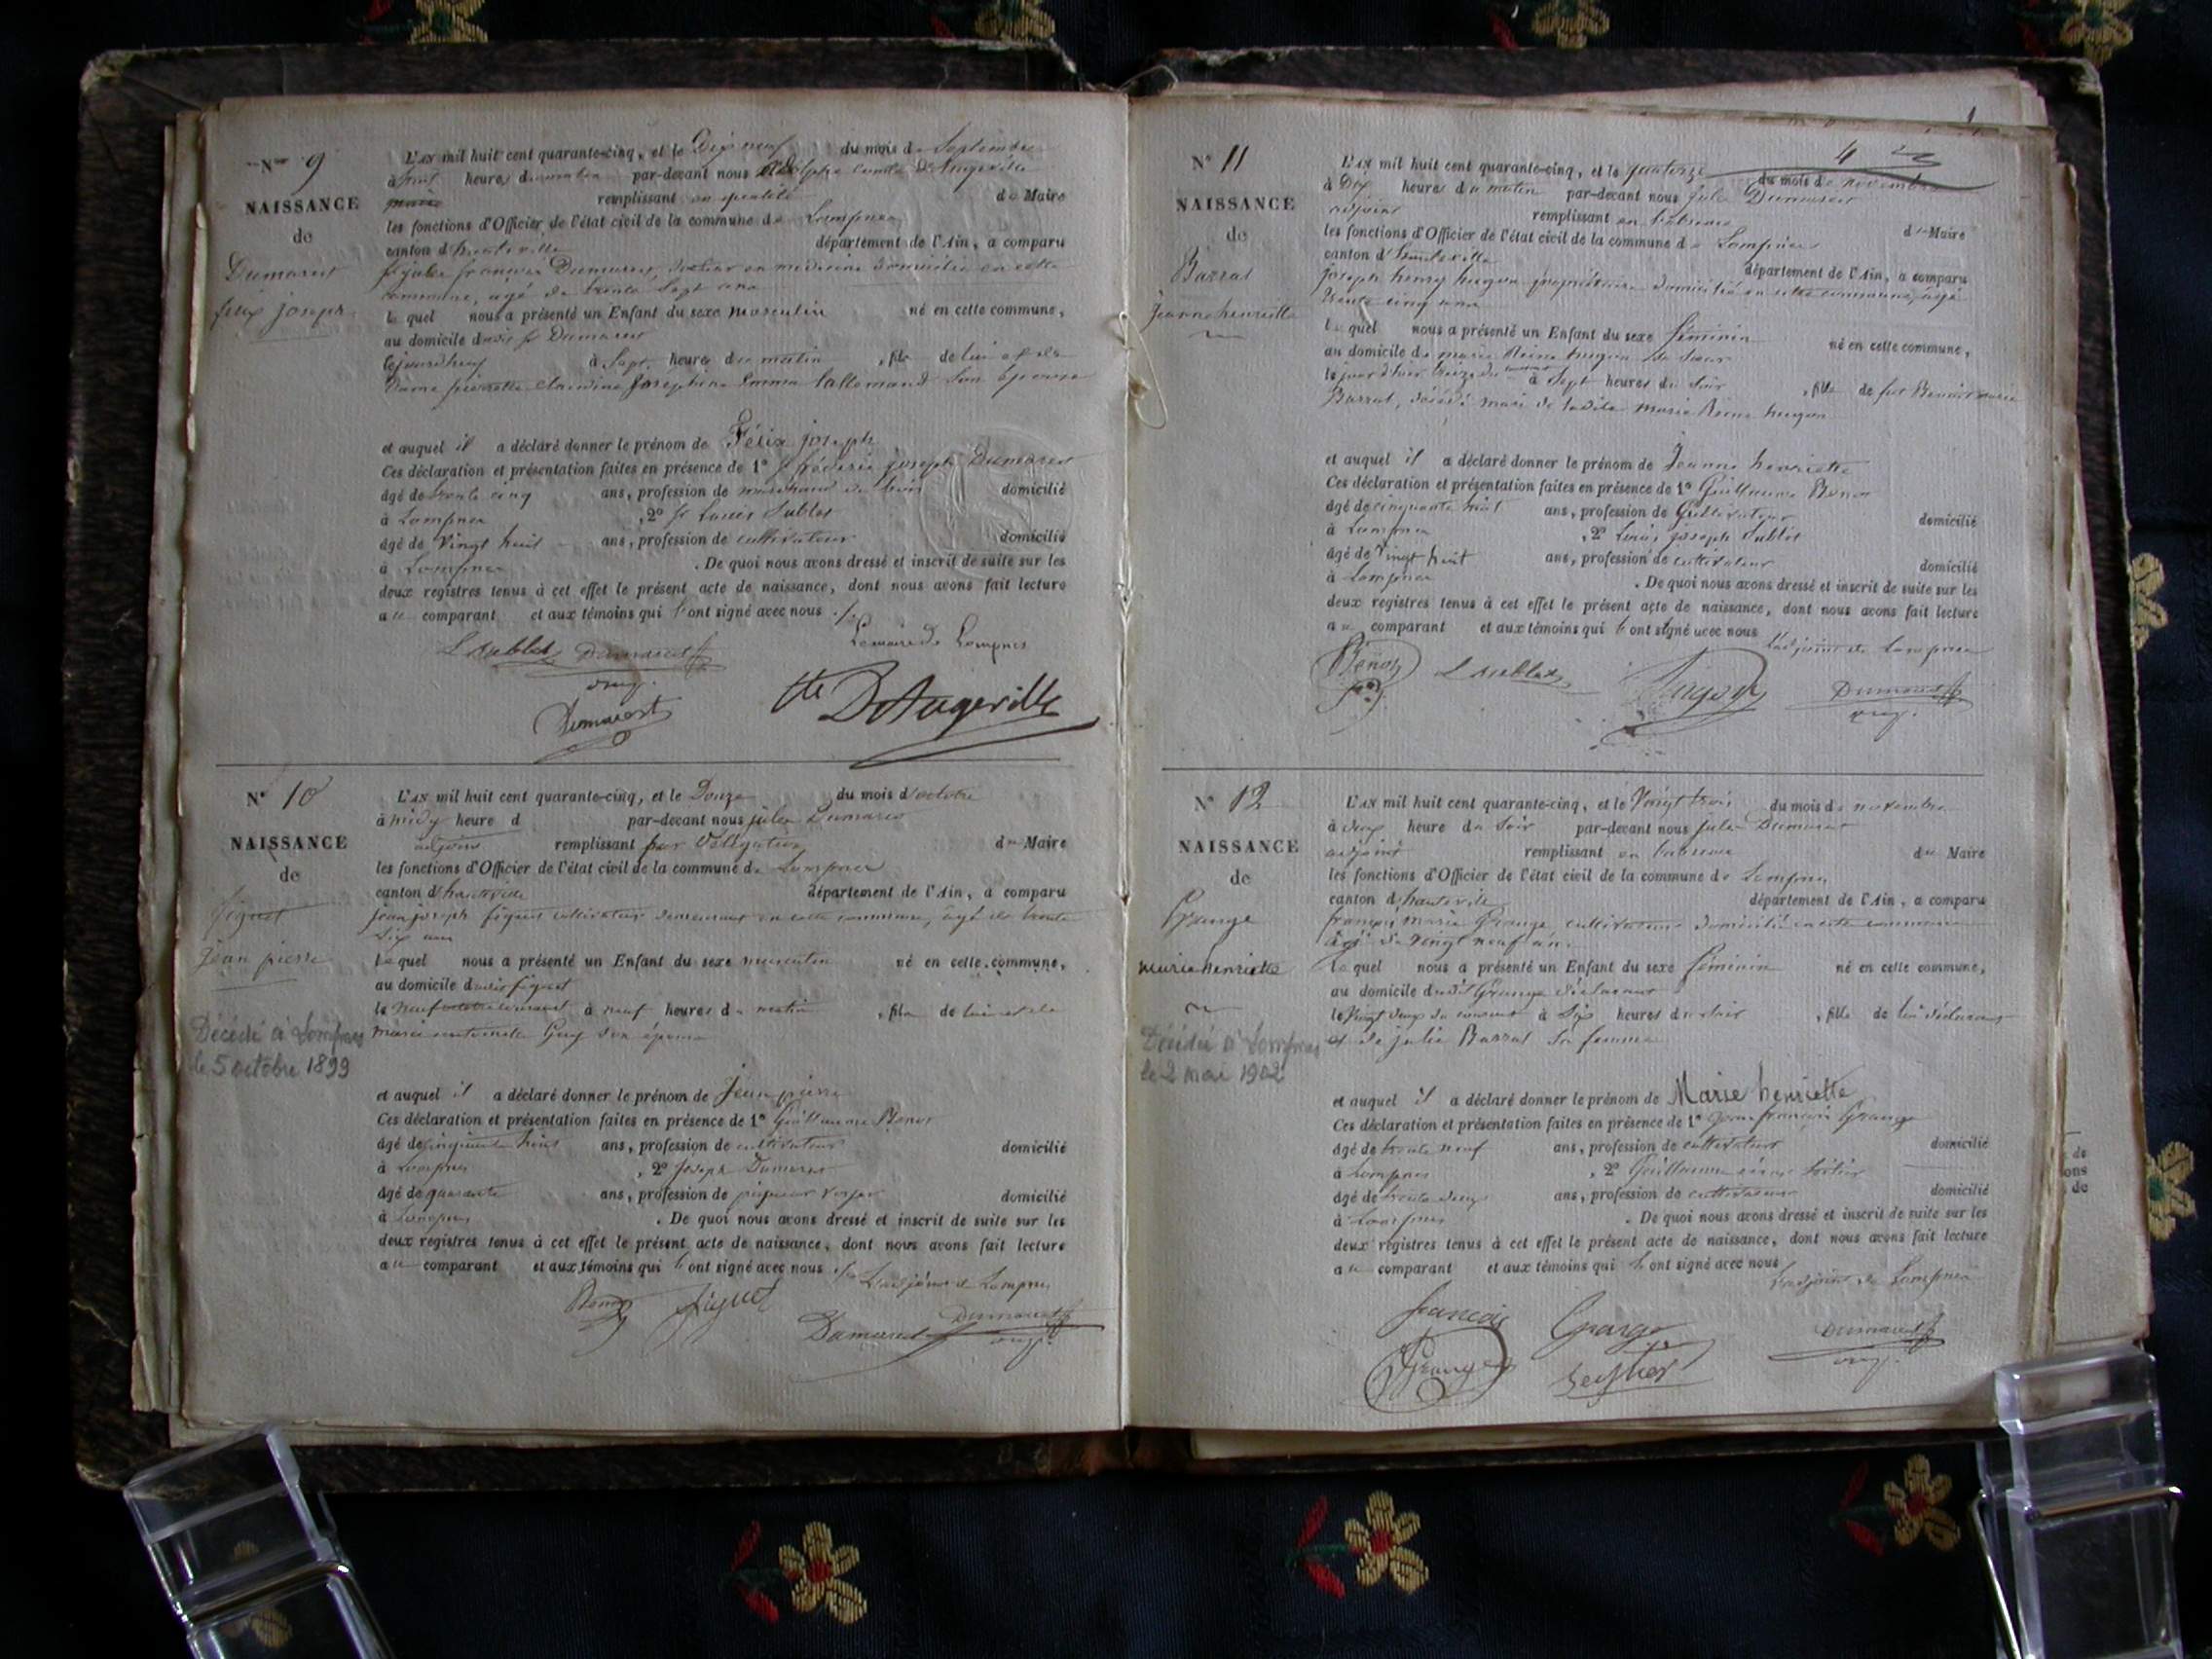 N° 9
NAISSANCE
de
Dumarest
félix joseph
L'AN mil huit cent quarante-cinq, et le Dix neuf du mois de Septembre
à huit heures du matin par-devant nous Adolphe Comte D'Angeville
maire remplissant en qualité de Maire
les fonctions d'Officier de l'état civil de la commune de Lompnes
canton d'hauteville département de l'Ain, a comparu
Sr jules françois Dumarest, docteur en medecine domicilié en cette
commune, agé de trente Sept ans
le quel nous a présenté un Enfant du sexe masculin né en cette commune,
au domicile dudit Sr Dumarest
cejourdhuy à Sept heures du matin , fils de lui et de
Dame pierrette Claudine Joséphine Emma lallemand Son épouse
et auquel il a déclaré donner le prénom de Félix joseph
Ces déclaration et présentation faites en présence de 1° Sr fréderic joseph Dumarest
âgé de trente cinq ans, profession de marchand de bois domicilié
à Lompnes , 2° Sr Louis Sublet
âgé de Vingt huit ans, profession de cultivateur domicilié
à Lompnes . De quoi nous avons dressé et inscrit de suite sur les
deux registres tenus à cet effet le présent acte de naissance, dont nous avons fait lecture
au comparant et aux témoins qui l'ont signé avec nous ./.
Le maire de Lompnes
L Sublet Dumarest
Dumarest
Cte D'Angeville
N° 10
NAISSANCE
de
figuet
Jean pierre
Décédé à Lompnes
le 5 octobre 1899
L'AN mil huit cent quarante-cinq, et le Douze du mois d'octobre
à midy heure d par-devant nous jules Dumarest
adjoint remplissant par Délégation du Maire
les fonctions d'Officier de l'état civil de la commune de Lompnes
canton d'hauteville département de l'Ain, a comparu
jean joseph figuet cultivateur demeurant en cette commune, agé de trente
Six ans
Lequel nous a présenté un Enfant du sexe masculin né en cette commune,
au domicile dudit figuet
le neuf octobre courant à neuf heures du matin , fils de lui et de
marie antoinette Guy Son épouse
et auquel il a déclaré donner le prénom de Jean pierre
Ces déclaration et présentation faites en présence de 1° Guillaume Benos
âgé de cinquante huit ans, profession de cultivateur domicilié
à Lompnes , 2° Joseph Dumarest
âgé de quarante ans, profession de piqueur voyer domicilié
à Lompnes . De quoi nous avons dressé et inscrit de suite sur les
deux registres tenus à cet effet le présent acte de naissance, dont nous avons fait lecture
au comparant et aux témoins qui l'ont signé avec nous ./.
L'adjoint de Lompnes
Benos figuet
Dumarest Dumarest
4
N° 11
NAISSANCE
de
Barral
Jeanne henriette
L'AN mil huit cent quarante-cinq, et le quatorze du mois de novembre
à Dix heures du matin par-devant nous jules Dumarest
adjoint remplissant en l'absence du Maire
les fonctions d'Officier de l'état civil de la commune de Lompnes
canton d'hauteville département de l'Ain, a comparu
joseph henry hugon propriétaire domicilié en cette commune, agé
trente cinq ans
le quel nous a présenté un Enfant du sexe féminin né en cette commune,
au domicile de marie Reine hugon Sa Sœur
le jour d'hier treize du courant à Sept heures du Soir , fille de fut Benoit marie
Barral, décédé mari de ladite marie Reine hugon
et auquel il a déclaré donner le prénom de Jeanne henriette
Ces déclaration et présentation faites en présence de 1° Guillaume Benos
âgé de cinquante huit ans, profession de Cultivateur domicilié
à Lompnes , 2° Louis joseph Sublet
âgé de Vingt huit ans, profession de cultivateur domicilié
à Lompnes . De quoi nous avons dressé et inscrit de suite sur les
deux registres tenus à cet effet le présent acte de naissance, dont nous avons fait lecture
au comparant et aux témoins qui l'ont signé avec nous
L'adjoint de Lompnes
Benos L Sublet hugon Dumarest
N° 12
NAISSANCE
de
Grange
marie henriette
Décédée à Lompnes
le 2 mai 1902
L'AN mil huit cent quarante-cinq, et le Vingt trois du mois de novembre
à deux heure du Soir par-devant nous jules Dumarest
adjoint remplissant en l'absence du Maire
les fonctions d'Officier de l'état civil de la commune de Lompnes
canton d'hauteville département de l'Ain, a comparu
françois marie Grange cultivateur domicilié en cette commune
âgé de vingt neuf ans.
Le quel nous a présenté un Enfant du sexe féminin né en cette commune,
au domicile dudit Grange déclarant
le Vingt deux du courant à Six heures du Soir , fille de lui déclarant
et de julie Barral Sa femme
et auquel il a déclaré donner le prénom de Marie henriette
Ces déclaration et présentation faites en présence de 1° Jean françois Grange
âgé de trente neuf ans, profession de cultivateur domicilié
à Lompnes , 2° Guillaume
âgé de trente deux ans, profession de cultivateur domicilié
à Lompnes . De quoi nous avons dressé et inscrit de suite sur les
deux registres tenus à cet effet le présent acte de naissance, dont nous avons fait lecture
au comparant et aux témoins qui l'ont signé avec nous
L'adjoint de Lompnes
francois
Grange
Dumarest